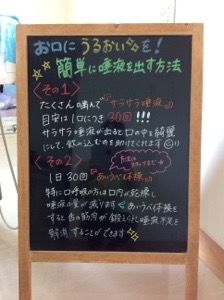 お口にうるおいを!
簡単に唾液を出す方法
<その1>
たくさん噛んで『サラサラ唾液』
目安は1口につき30回!!!
サラサラ唾液が出ると口の中を綺麗
にして、飲み込むのを助けてくれます
<その2>
方法は
1日30回『あいうべ体操』
特に口呼吸の方は口内が乾燥し
唾液の量が減ります あいうべ体操を
すると舌の筋肉が鍛えられ唾液不足を
解消することができます